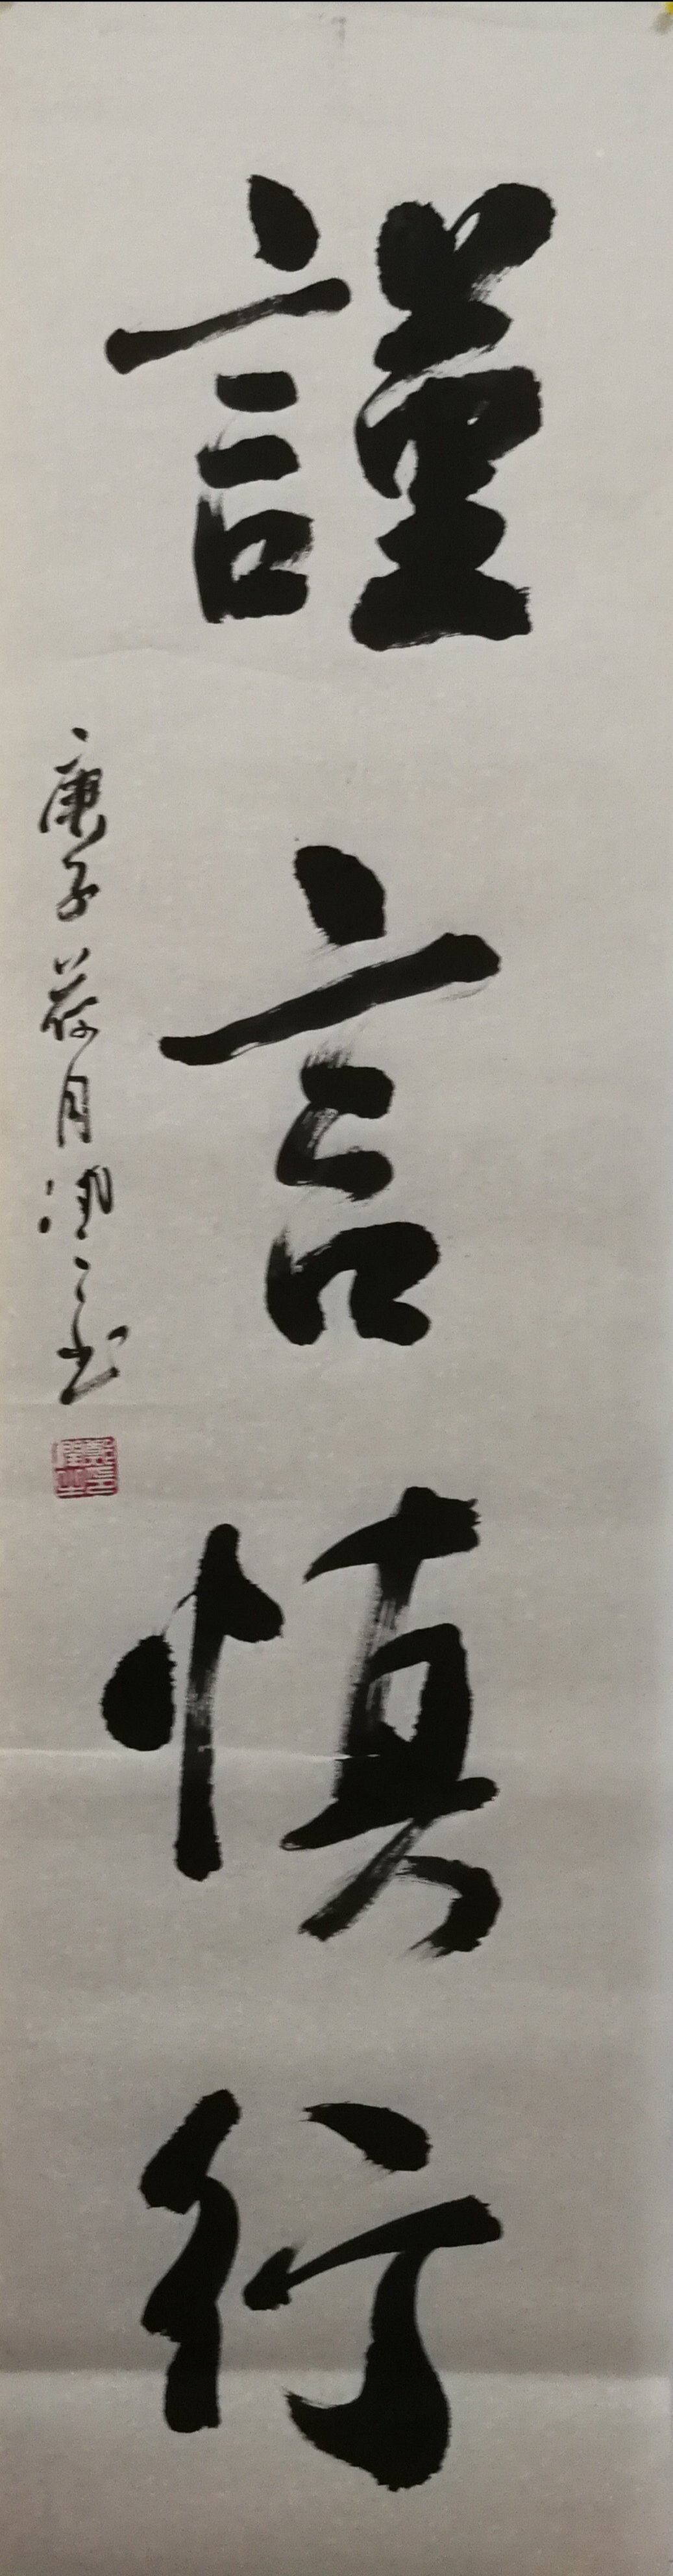 謹言慎行
庚子荷月润之书